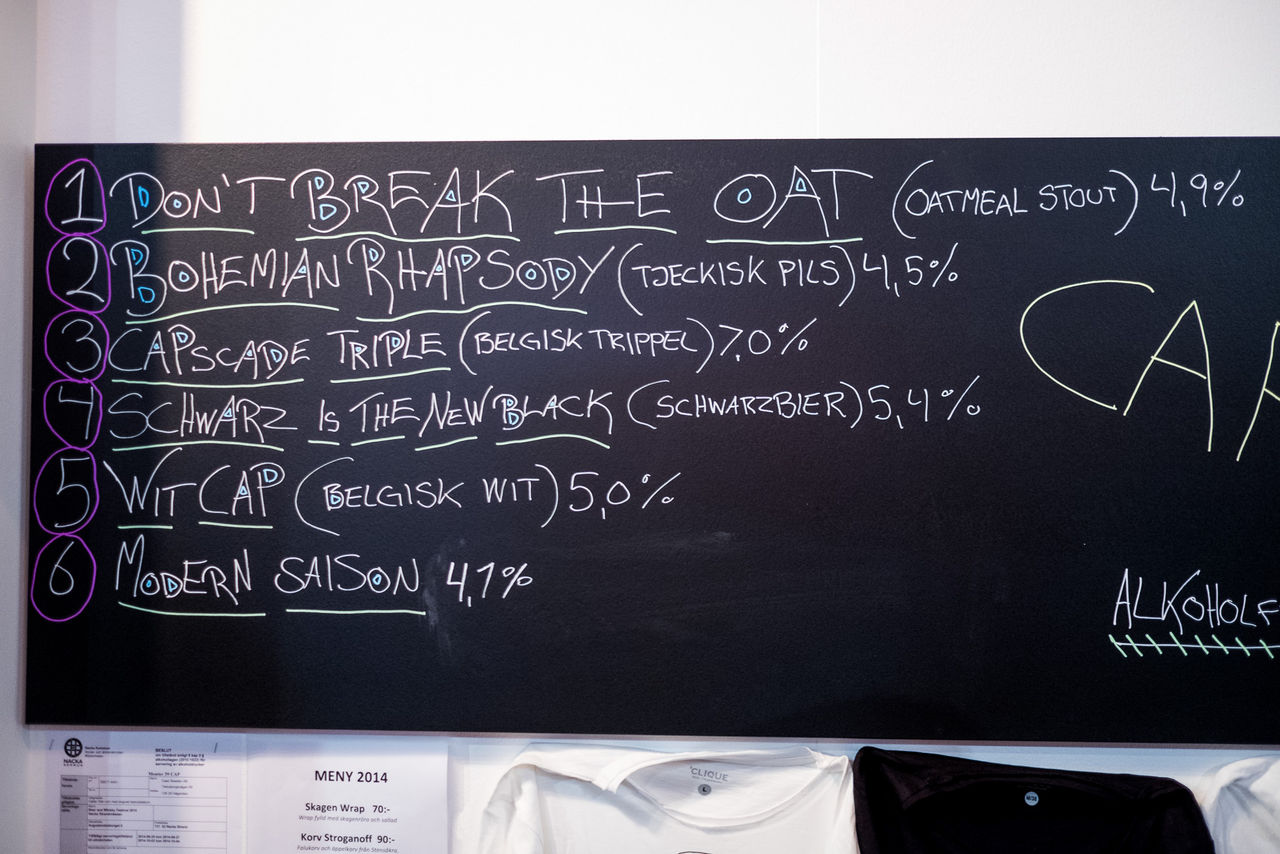 1 DON'T BREAK THE OAT (OATMEAL STOUT) 4,9%
2 BOHEMIAN RHAPSODY (TJECKISK PILS) 4,5%
3 CAPSCADE TRIPLE (BELGISK TRIPPEL) 7,0%
4 SCHWARZ IS THE NEW BLACK (SCHWARZBIER) 5,4%
5 WIT CAP (BELGISK WIT) 5,0%
6 MODERN SAISON 4,7%
CA
ALKOHOLF
NACKA
BESLUT
MENY 2014
Skagen Wrap 70:-
Wrap fylld med skagenröra och sallad
Korv Stroganoff 90:-
Falukorv och äppelkorv från Stensåkra.
CLIQUE
L